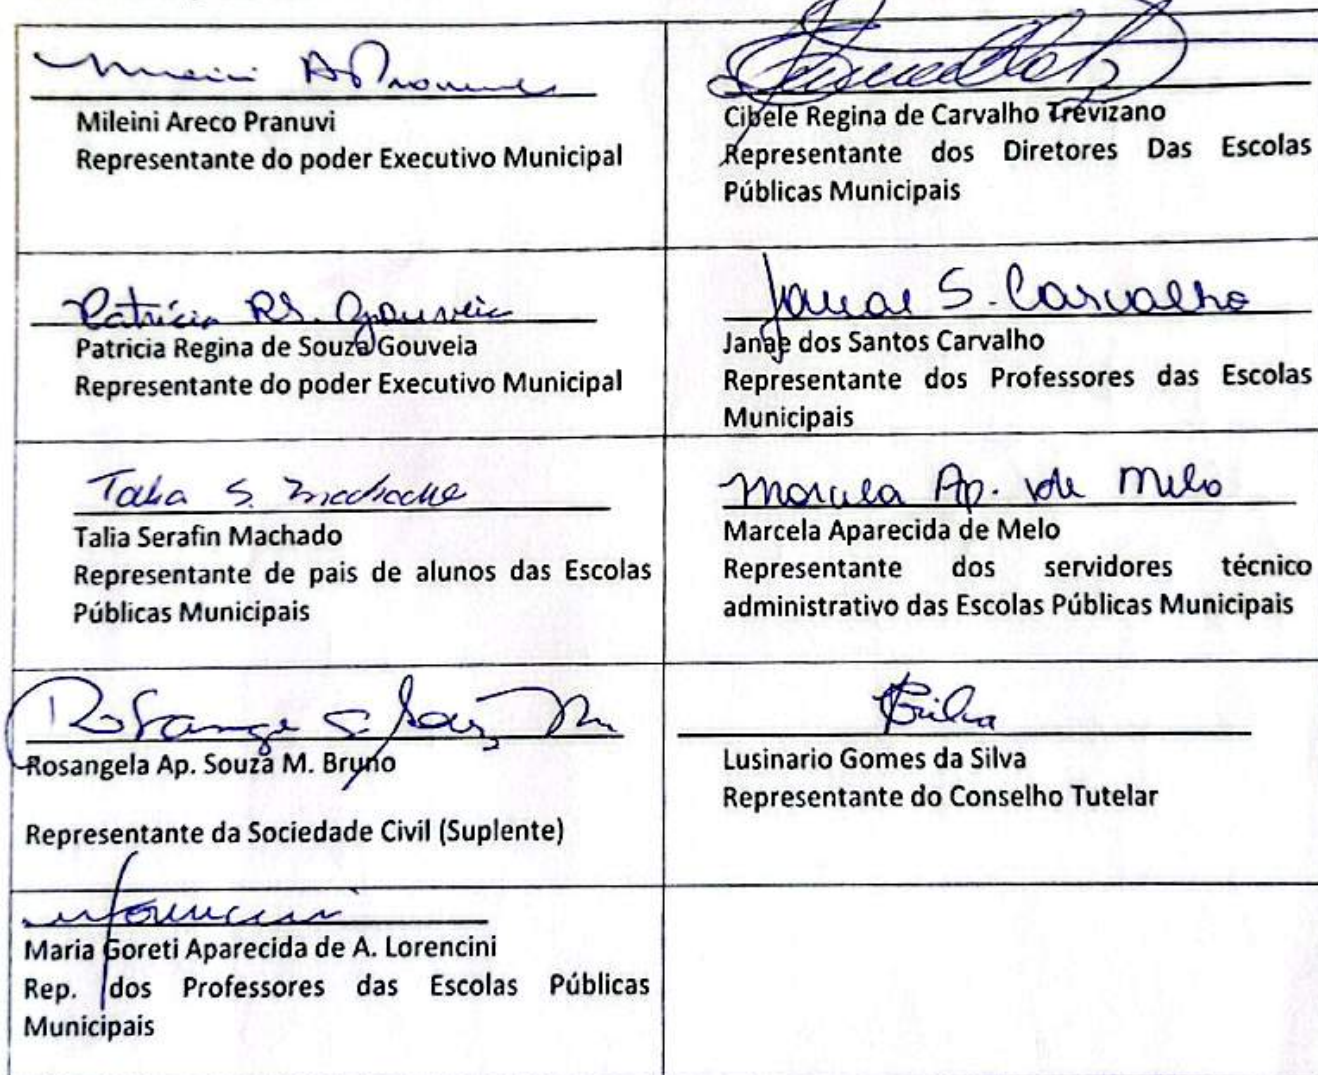 Mileini Areco Pranuvi
Representante do poder Executivo Municipal
Cibele Regina de Carvalho Trevizano
Representante dos Diretores Das Escolas
Públicas Municipais
Patrícia RS. Gouveia
Patricia Regina de Souza Gouveia
Representante do poder Executivo Municipal
Janae S. Carvalho
Janae dos Santos Carvalho
Representante dos Professores das Escolas
Municipais
Talia S. Machado
Talia Serafin Machado
Representante de pais de alunos das Escolas
Públicas Municipais
Marcela Ap. de Melo
Marcela Aparecida de Melo
Representante dos servidores técnico
administrativo das Escolas Públicas Municipais
Rosangela Ap. Souza M. Bruno
Representante da Sociedade Civil (Suplente)
Silva
Lusinario Gomes da Silva
Representante do Conselho Tutelar
Maria Goreti Aparecida de A. Lorencini
Rep. dos Professores das Escolas Públicas
Municipais